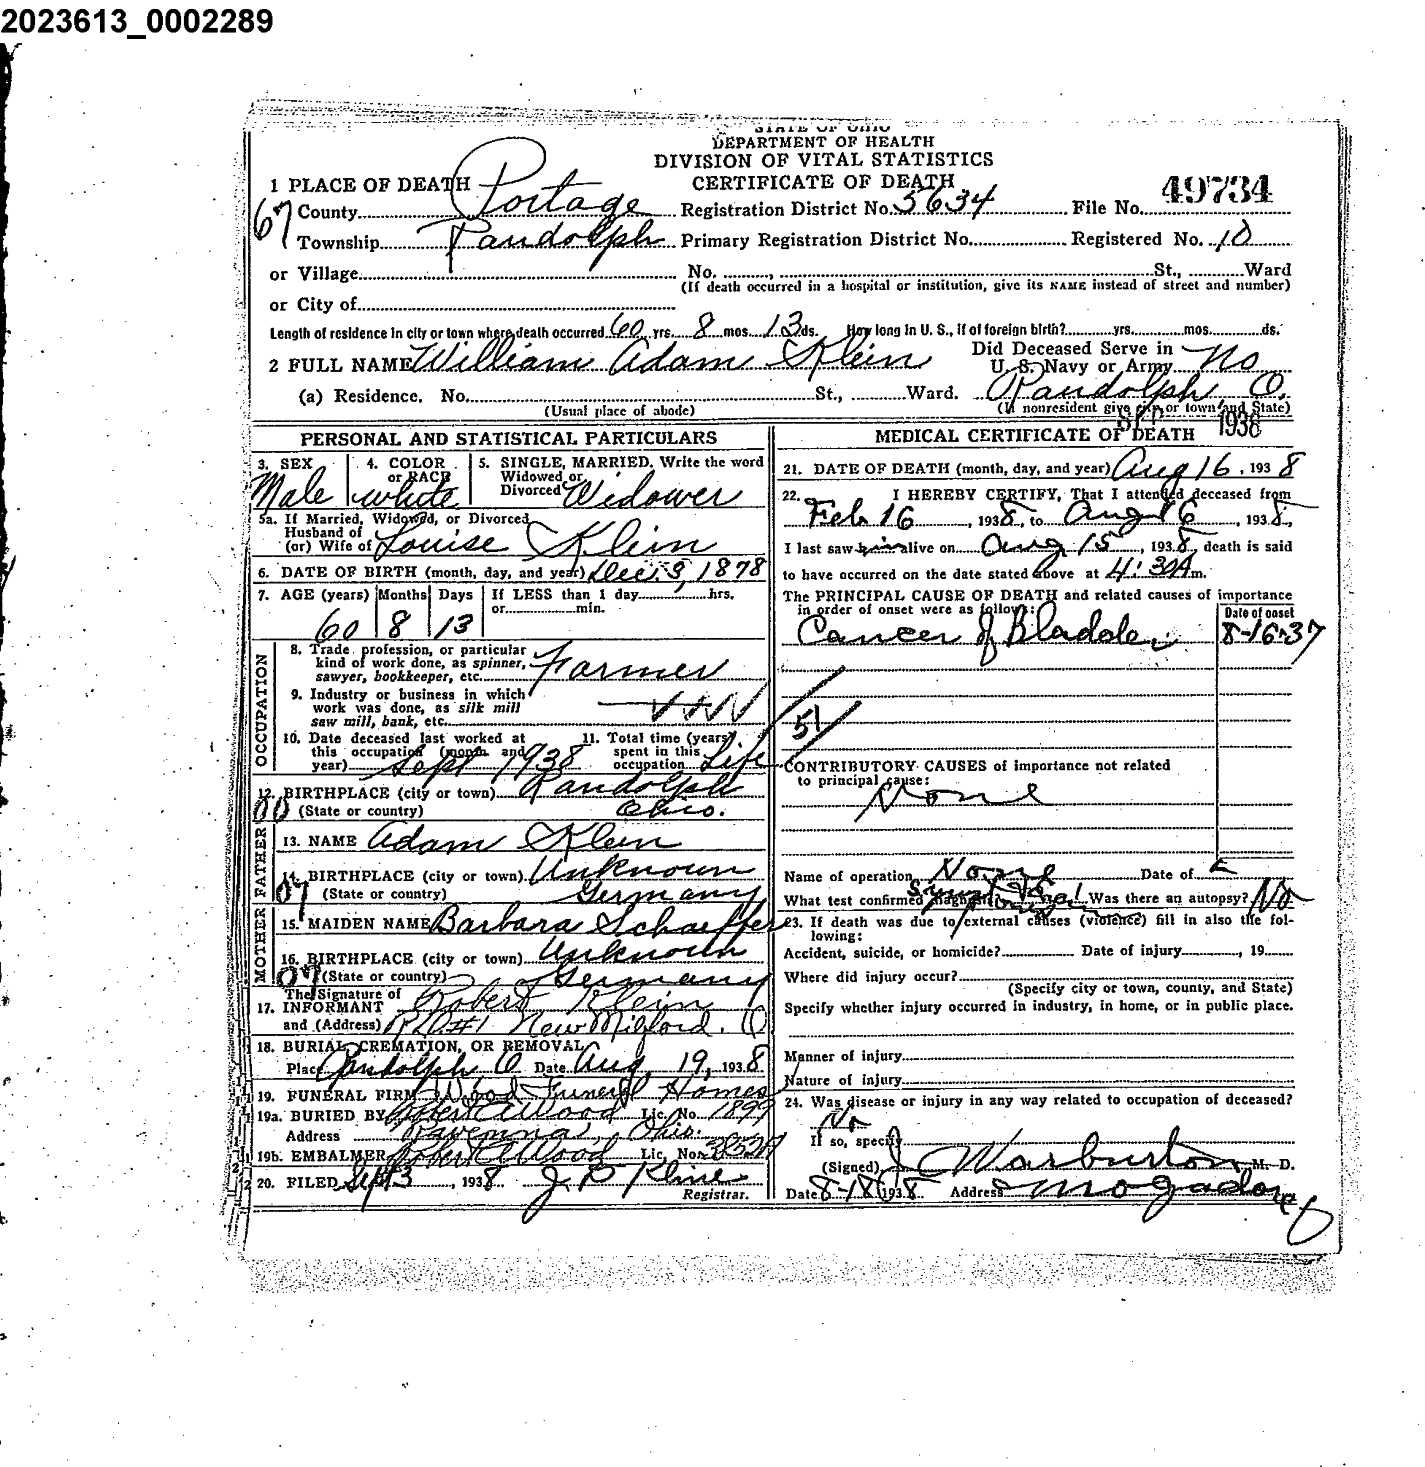 2023613_0002289
STATE OF OHIO
DEPARTMENT OF HEALTH
DIVISION OF VITAL STATISTICS
CERTIFICATE OF DEATH
1 PLACE OF DEATH
67 County Portage Registration District No. 5634 File No. 49734
Township Randolph Primary Registration District No. Registered No. 10
or Village No. , St., Ward
(If death occurred in a hospital or institution, give its NAME instead of street and number)
or City of
Length of residence in city or town where death occurred 60 yrs. 8 mos. 13 ds. How long in U. S., if of foreign birth? yrs. mos. ds.
2 FULL NAME William Adam Klein Did Deceased Serve in U. S. Navy or Army No
(a) Residence. No. St., Ward. Randolph, O.
(Usual place of abode) (If nonresident give city or town and State)
1938
PERSONAL AND STATISTICAL PARTICULARS
3. SEX Male
4. COLOR or RACE white
5. SINGLE, MARRIED. Write the word Widowed or Divorced Widower
5a. If Married, Widowed, or Divorced
Husband of
(or) Wife of Louise Klein
6. DATE OF BIRTH (month, day, and year) Dec. 3, 1878
7. AGE (years) Months Days If LESS than 1 day hrs.
or min.
60 8 13
OCCUPATION
8. Trade, profession, or particular
kind of work done, as spinner,
sawyer, bookkeeper, etc. Farmer
9. Industry or business in which
work was done, as silk mill
saw mill, bank, etc.
10. Date deceased last worked at
this occupation (month and
year) Sept 1938
11. Total time (years)
spent in this
occupation Life
12. BIRTHPLACE (city or town) Randolph
00 (State or country) Ohio.
FATHER
13. NAME Adam Klein
14. BIRTHPLACE (city or town) Unknown
07 (State or country) Germany
MOTHER
15. MAIDEN NAME Barbara Schaeffer
16. BIRTHPLACE (city or town) Unknown
07 (State or country) Germany
The Signature of
17. INFORMANT Robert Klein
and (Address) R.D#1 New Milford. O
18. BURIAL, CREMATION, OR REMOVAL
Place Randolph O Date Aug, 19, 1938
19. FUNERAL FIRM Wood Funeral Homes
19a. BURIED BY Robert E Wood Lic. No. 1899
Address Ravenna, Ohio.
19b. EMBALMER Robert E Wood Lic. No.
20. FILED Sept 3, 1938 J. P Kline
Registrar.
MEDICAL CERTIFICATE OF DEATH
21. DATE OF DEATH (month, day, and year) Aug 16, 1938
22. I HEREBY CERTIFY, That I attended deceased from
Feb 16, 1938, to Aug 16, 1938,
I last saw him alive on Aug 15, 1938, death is said
to have occurred on the date stated above at 4:30A m.
The PRINCIPAL CAUSE OF DEATH and related causes of importance
in order of onset were as follows: Date of onset
Cancer of Bladder 8-16-37
51
CONTRIBUTORY CAUSES of importance not related
to principal cause:
None
Name of operation None Date of
What test confirmed diagnosis? Was there an autopsy? No
23. If death was due to external causes (violence) fill in also the fol-
lowing:
Accident, suicide, or homicide? Date of injury , 19
Where did injury occur?
(Specify city or town, county, and State)
Specify whether injury occurred in industry, in home, or in public place.
Manner of injury
Nature of injury
24. Was disease or injury in any way related to occupation of deceased?
No
If so, specify
(Signed) J Warburton, M. D.
Date 8-18 1938 Address Mogadore O